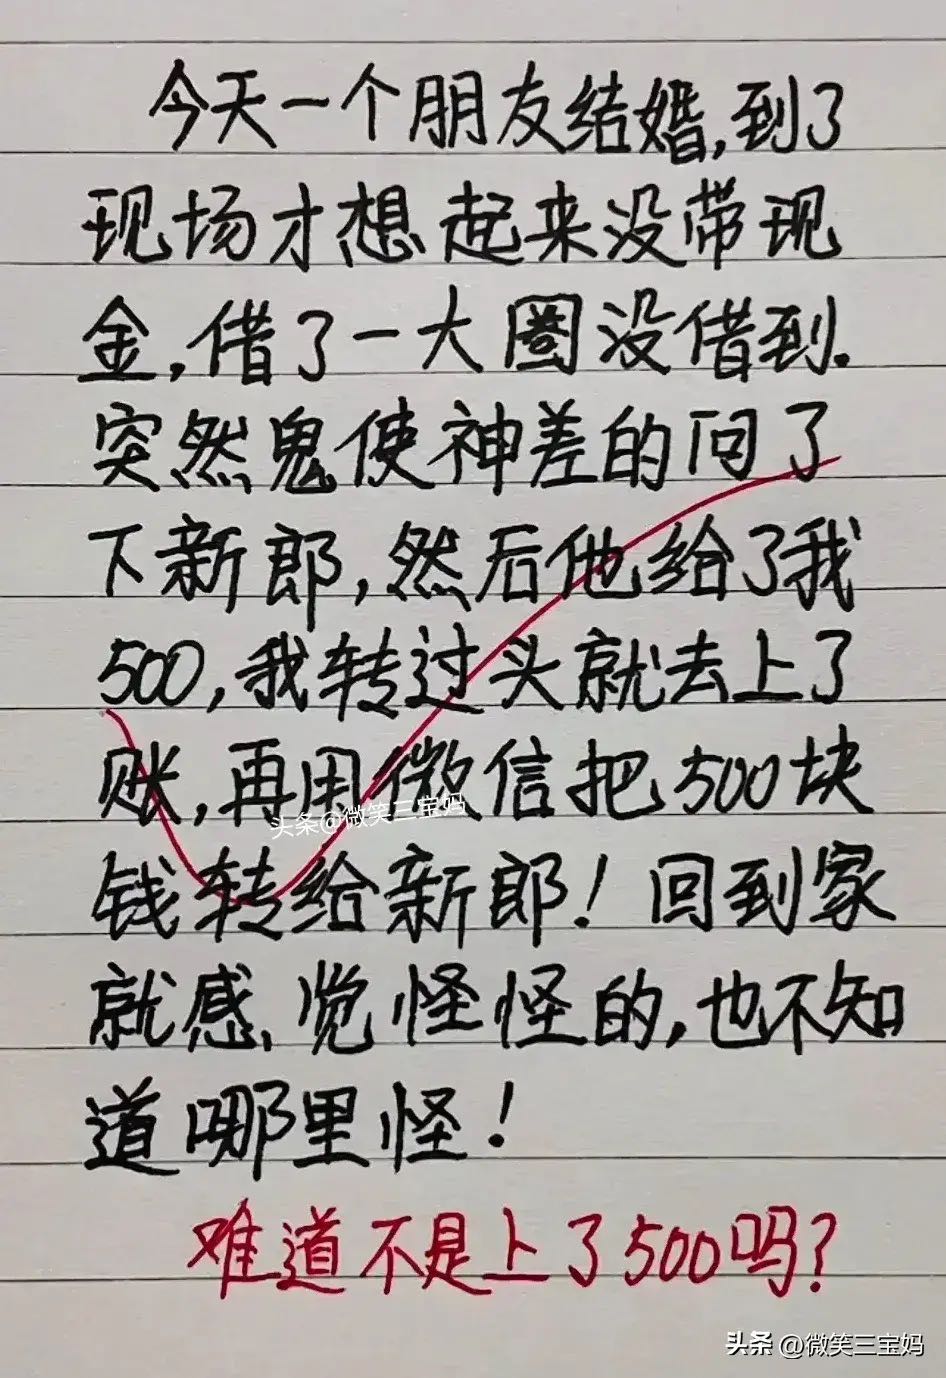 今天一个朋友结婚,到了
现场才想起来没带现
金,借了一大圈没借到.
突然鬼使神差的问了
下新郎,然后他给了我
500,我转过头就去上了
账,再用微信把500块
头条@微笑三宝妈
钱转给新郎!回到家
就感觉怪怪的,也不知
道哪里怪!
难道不是上了500吗?
头条 @微笑三宝妈